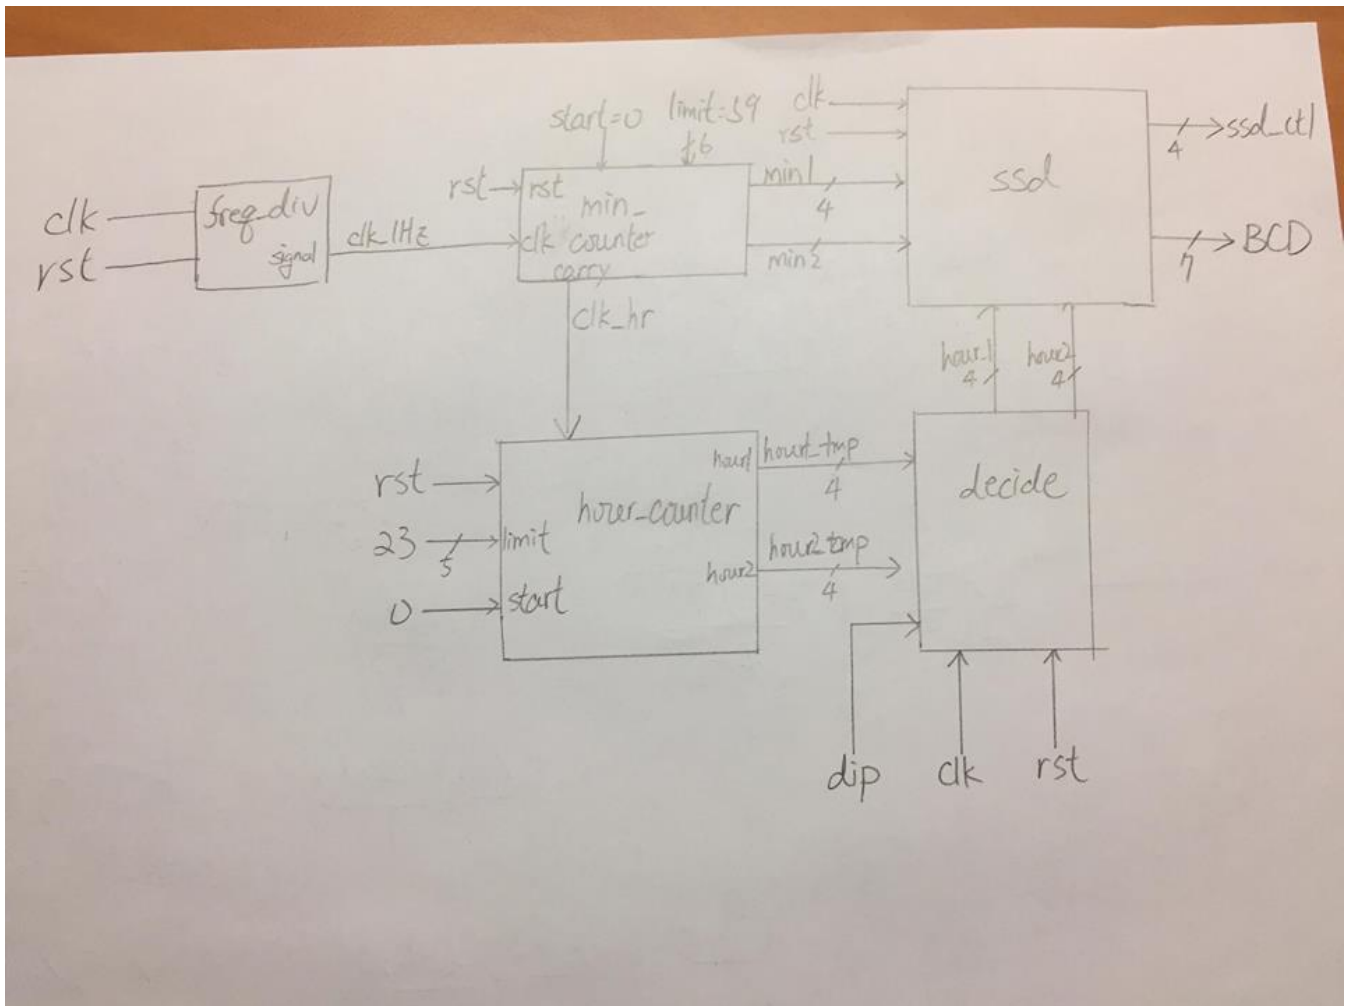 clk
rst
freq_div
signal
clk_1Hz
start=0
limit=59
6
rst
rst
min_
clk counter
carry
clk_hr
min1
4
min2
clk
rst
ssd
ssd_ctl
4
BCD
7
hour_1
4
hour2
4
rst
23
5
limit
0
start
hour_counter
hour1
hour1_tmp
4
hour2
hour2_tmp
4
decide
dip
clk
rst